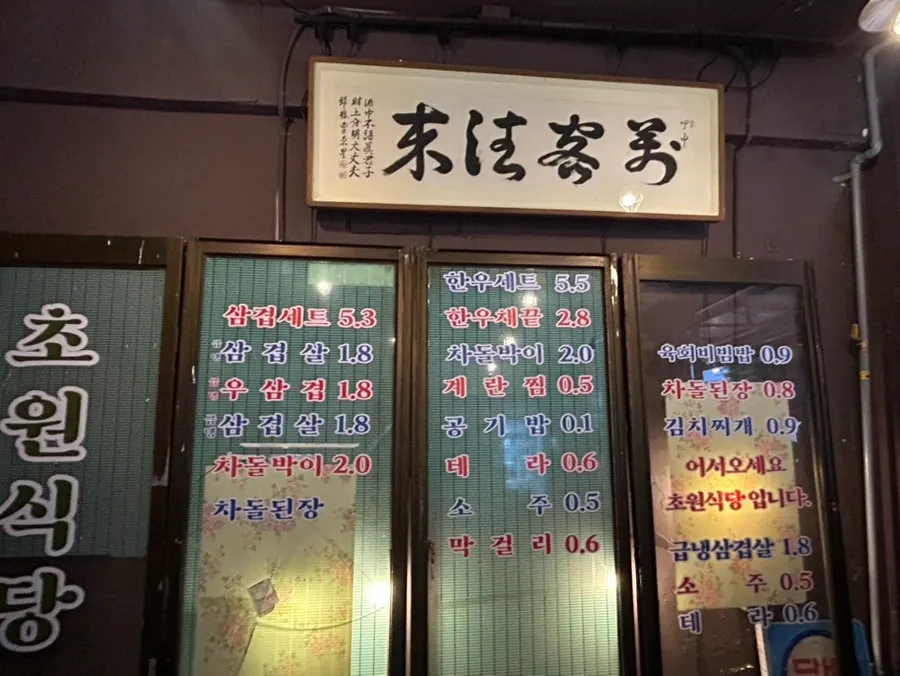 万客请来
酒中不語真君子
財上分明大丈夫
초원식당
삼겹세트 5.3
급냉 삼겹살 1.8
급냉 우삼겹 1.8
급냉 삼겹살 1.8
차돌박이 2.0
차돌된장
한우세트 5.5
한우채끝 2.8
차돌박이 2.0
계란찜 0.5
공기밥 0.1
테라 0.6
소주 0.5
막걸리 0.6
육회비빔밥 0.9
차돌된장 0.8
김치찌개 0.9
어서오세요
초원식당입니다.
급냉삼겹살 1.8
소주 0.5
테라 0.6